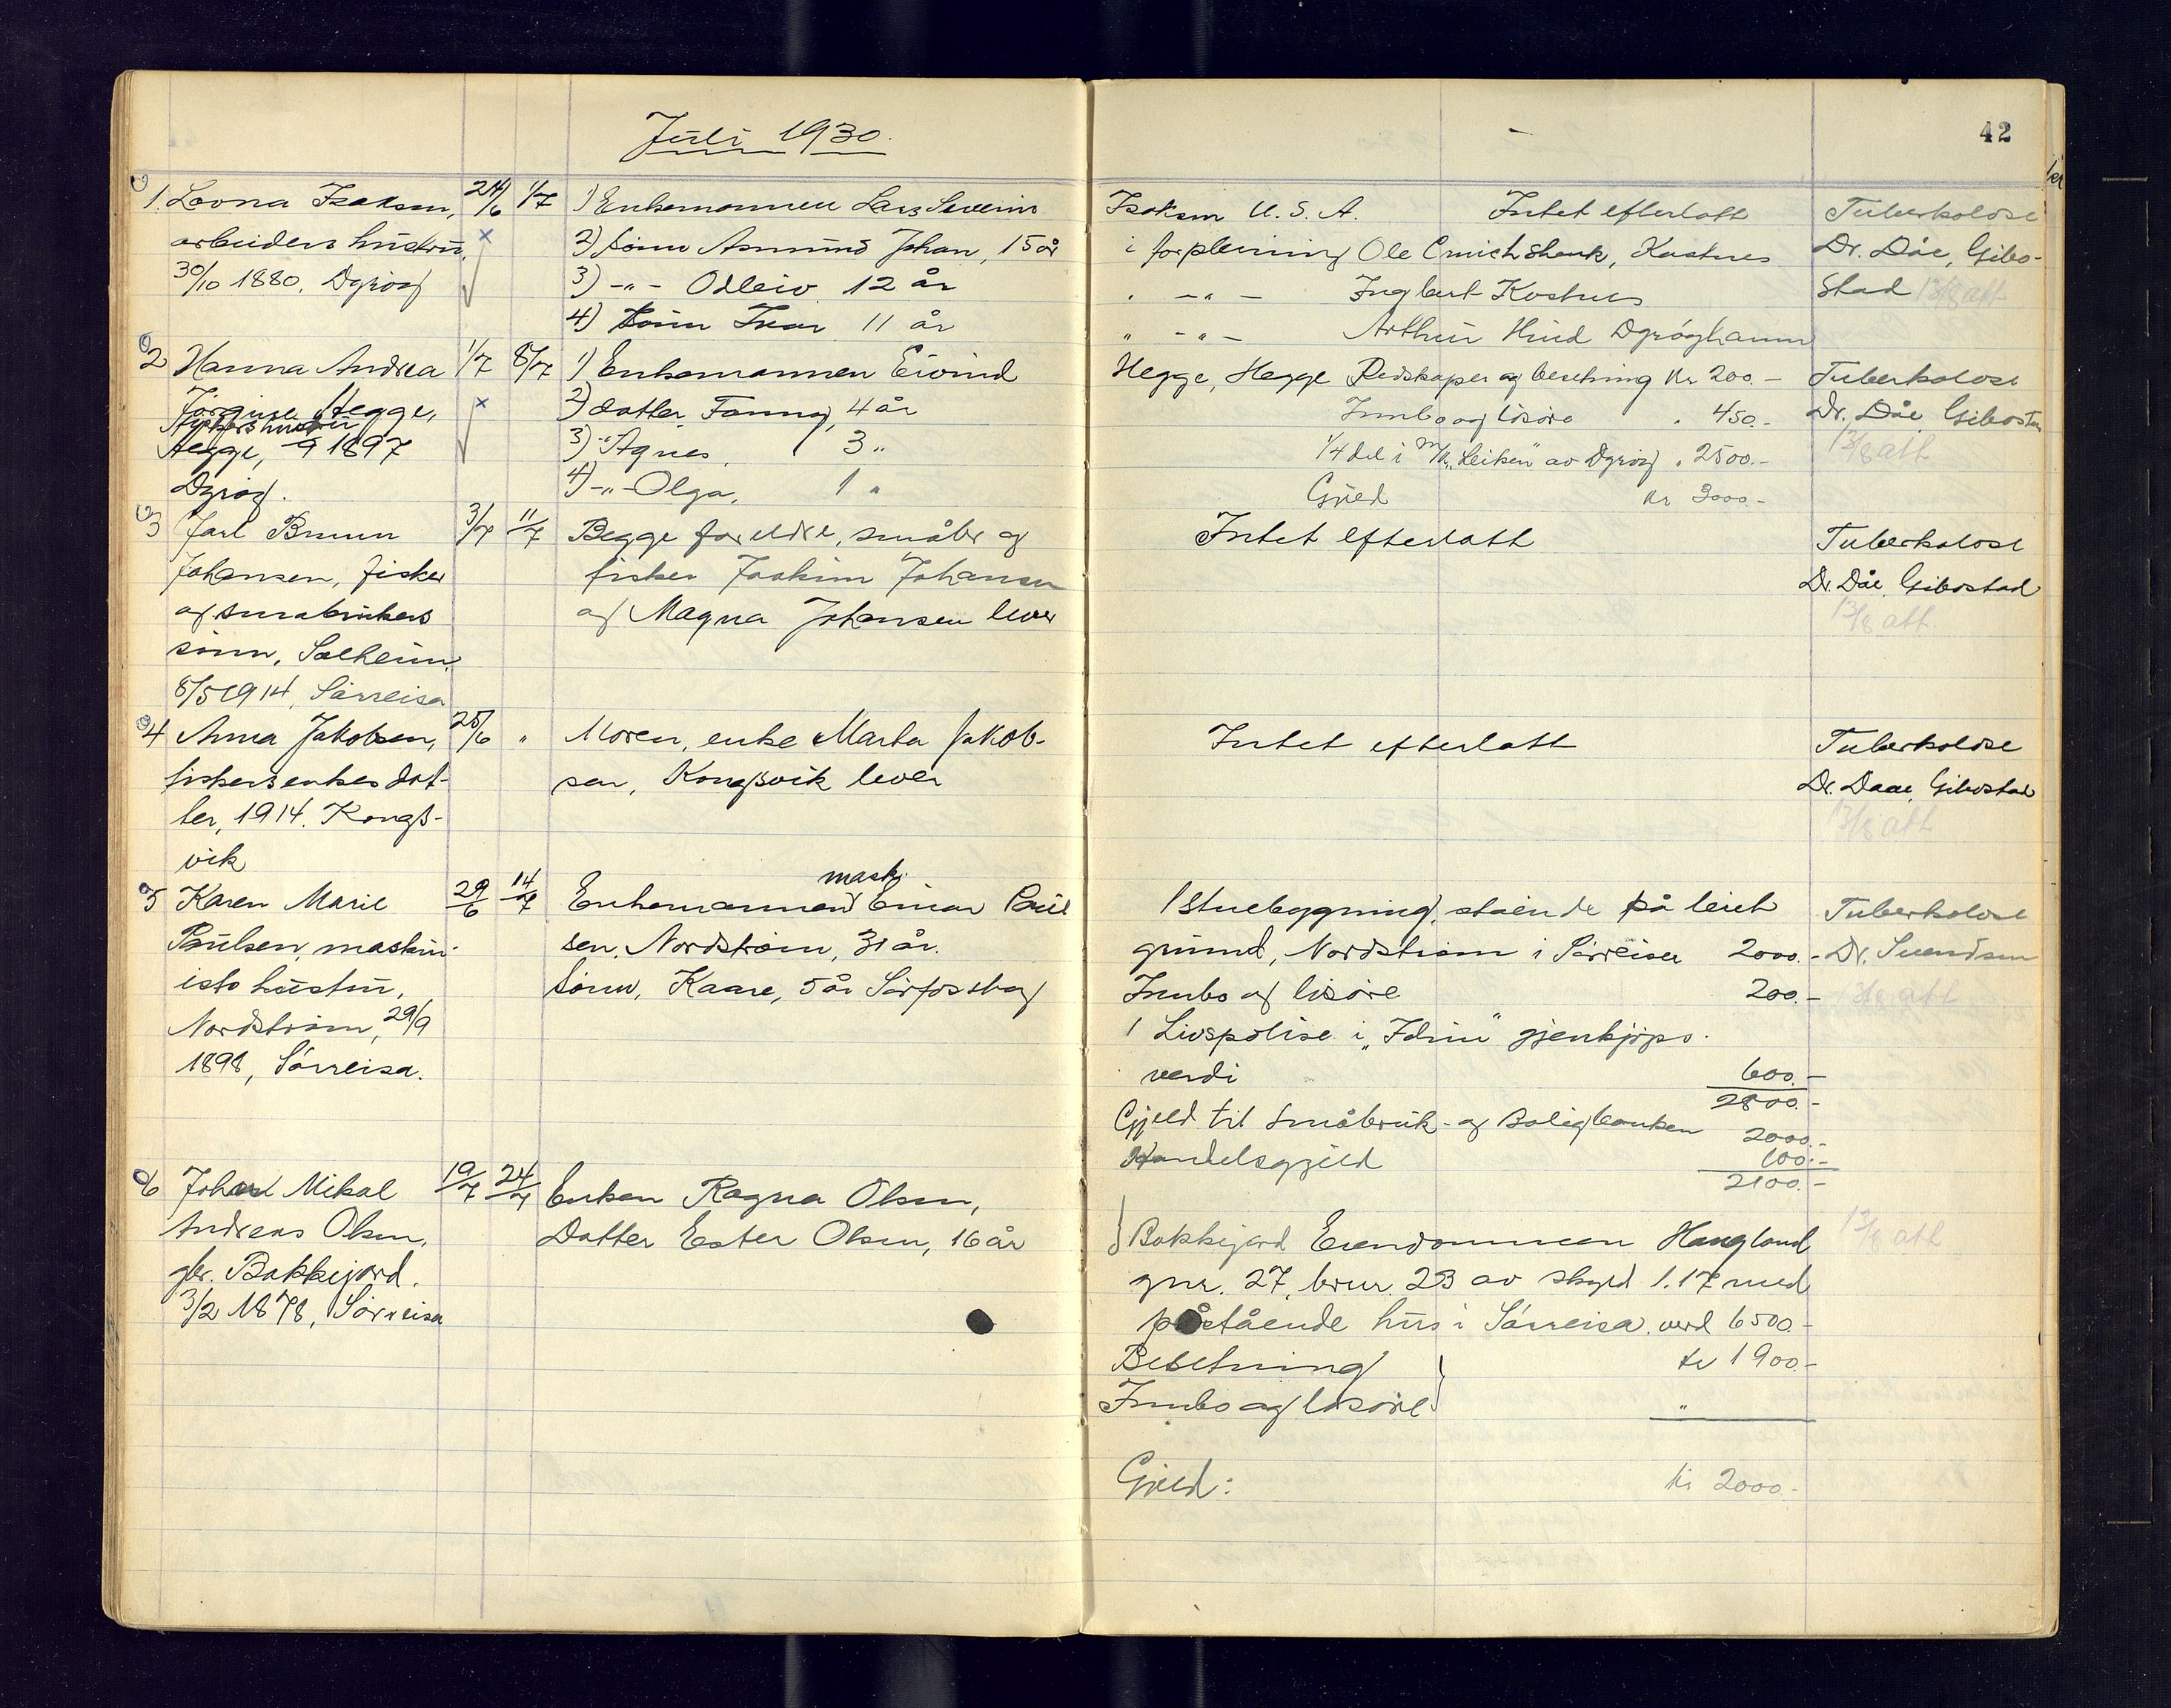 Juli 1930.
42
1. Lovna Isaksen, 24/6 1/7 1) Enkemannen Lars Severin Isaksen U.S.A. Intet efterlatt Tuberkolose
arbeiders hustru, x 2) Sønn Asmund Johan, 15 år i forpleining Ole Kastnes Dr. Dåe, Gibo-
30/10 1880. Dyrøy 3) -"- Odleiv 12 år " -"- Ingbert Kastnes stad 13/8 att
4) Sønn Ivar 11 år " -"- Arthur Hind Dyrøyhamn
2 Hanna Andrea 1/7 8/7 1) Enkemannen Eivind Hegge, Hegge Redskaper og besetning kr 200.- Tuberkolose
Jörgine Hegge, x 2) datter Fanny, 4 år Innbo og løsøre " 450.- Dr. Dåe Gibostad
fiskers hustru
Hegge, /9 1897 3) -"- Agnes, 3 " 1/4 del i M/k "Leiken" av Dyrøy " 2500.- 13/8 att
Dyrøy. 4) -"- Olga, 1 " Gjeld kr 3000-
3 Jarl Bruun 3/7 11/7 Begge foreldre, småbr og Intet efterlatt Tuberkolose
Johansen, fisker fisker Joakim Johansen Dr. Dåe, Gibostad
og småbrukers og Magna Johansen lever 13/8 att.
sønn, Solheim,
8/5 1914, Sørreisa
4 Anna Jakobsen, 25/6 " Moren, enke Marta Jakob- Intet efterlatt Tuberkolose
fiskers enkes dat- sen, Kongsvik lever Dr. Daae, Gibostad
ter, 1914. Kongs- 13/8 att
vik
mask.
5 Karen Marie 29/6 14/7 Enkemannen Einar Paul 1 Stuebygning, stående på leiet Tuberkolose
Paulsen, maskin- sen, Nordstrøm, 31 år. grunn, Nordstrøm i Sørreisa 2000.- Dr. Svendsen
ists hustru, Sønn, Kaare, 5 år Sørfjosbog Innbo og løsøre 200.- 13/8 att
Nordstrøm, 29/9 1 Livspolise i "Idun" gjenkjøps.
1898, Sørreisa. verdi 600.-
2800.-
Gjeld til Småbruk- og Boligbanken 2000.-
Handelsgjeld 100.-
2100.-
6 Johan Mikal 19/7 24/7 Enken Ragna Olsen,
Andreas Olsen, Datter Ester Olsen, 16 år Bakkejord Eiendommen Haugland 13/8 att
gbr. Bakkejord. gnr. 27, brnr. 23 av skyld 1.17 med
3/2 1878, Sørreisa påstående hus i Sørreisa. verd 6500.-
Besetning kr 1900.-
Innbo og løsøre "
Gjeld: kr 2000.-